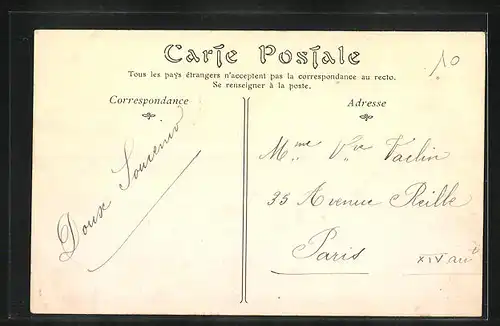 Carte Postale
Tous les pays étrangers n'acceptent pas la correspondance au recto.
Se renseigner à la poste.
10
Correspondance
Adresse
Doux Souvenir
Mme Vve
35 Avenue Reille
Paris
XIV